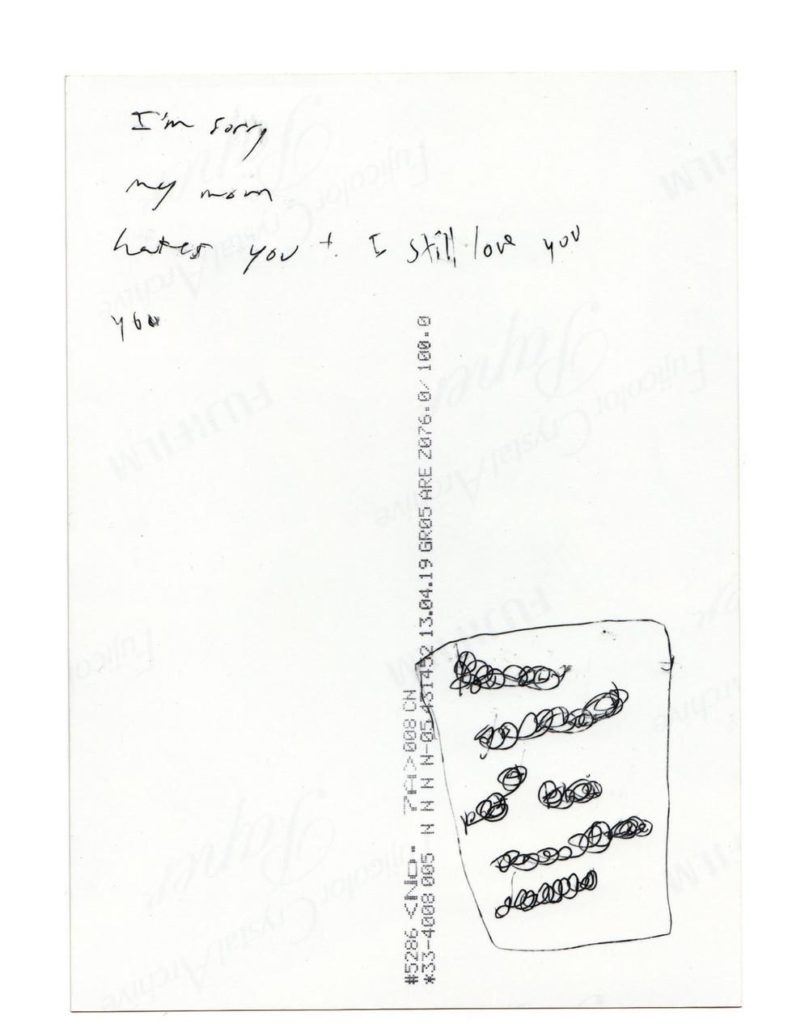 I'm sorry
my mom
hates you + I still love you
you
#5286 <No. 7A>008 CN
*33-4008 005 N N N N-05 431452 13.04.19 GR05 ARE 2076.0/ 100.0
FUJIFILM
Fujicolor Crystal Archive
Paper